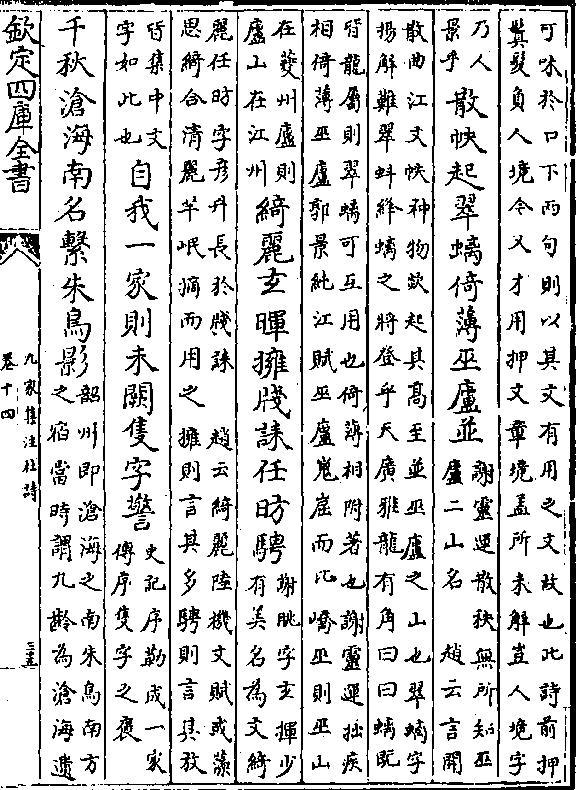 可咏於口下兩句則以其文有用之文故也此詩前押
鬢髮負人境令又才用押文章境盖所未解豈人境字
乃人
景乎
散帙起翠螭倚薄巫廬並
謝靈運散秩無所知巫
廬二山名　趙云言開
散曲江文帙神物欻起其高至並巫廬之山也翠螭字
揚解難翠虯絳螭之將登乎天廣雅龍有角曰曰螭既
皆龍屬則翠螭可互用也倚薄相附著也謝靈運拙疾
相倚薄巫廬郭景純江賦巫廬嵬崫而比嶠巫則巫山
在夔州廬則
廬山在江州
綺麗玄暉擁牋誄任昉騁
謝眺字玄揮少
有美名為文綺
麗任昉字彦升長於牋誄　趙云綺麗陸機文賦或藻
思綺合清麗芊岷摘而用之　擁則言其多騁則言其放
皆集中文
字如此也
自我一家則未闕隻字警
史記序勒成一家
傳序隻字之褒
千秋滄海南名繫朱鳥影
韶州即滄海之南朱鳥南方
之宿當時謂九齡為滄海遺
欽定四庫全書
九家集注杜詩
卷十四
三十五